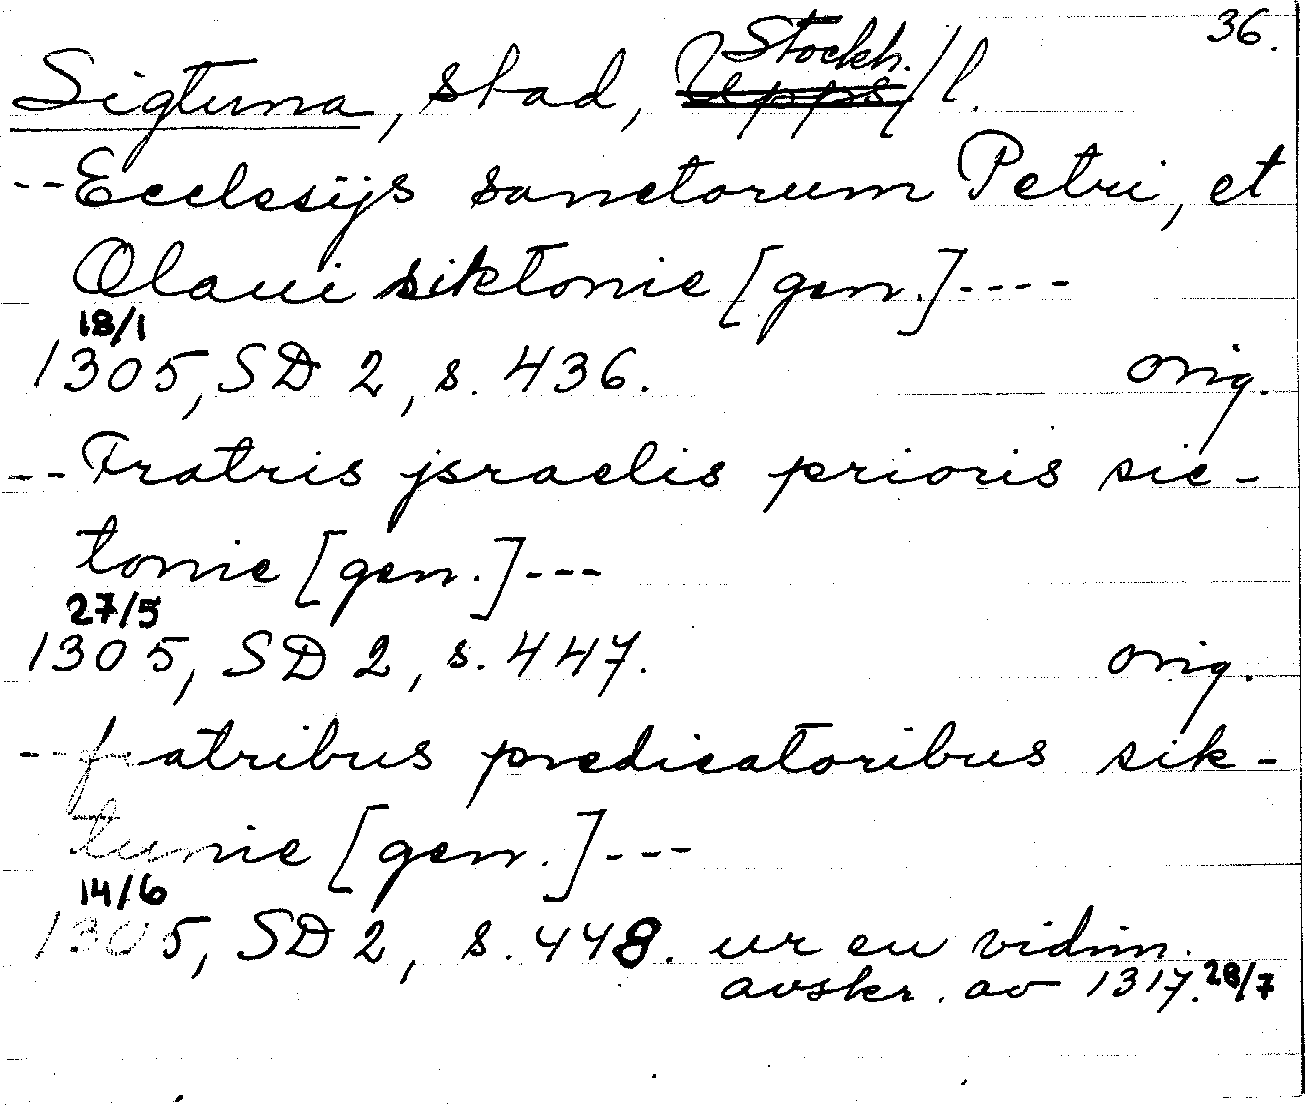 36.
Sigtuna, stad, Stockh. Upps/l.
--Ecclesijs sanctorum Petri, et
Olaui siktonie [gen.]----
18/1
1305, SD 2, s. 436. orig.
--Fratris jsraelis prioris sic-
tonie [gen.]---
27/5
1305, SD 2, s. 447. orig.
--fratribus predicatoribus sik-
tunie [gen.]---
14/6
1305, SD 2, s. 448. ur en vidim.
avskr. av 1317. 28/7